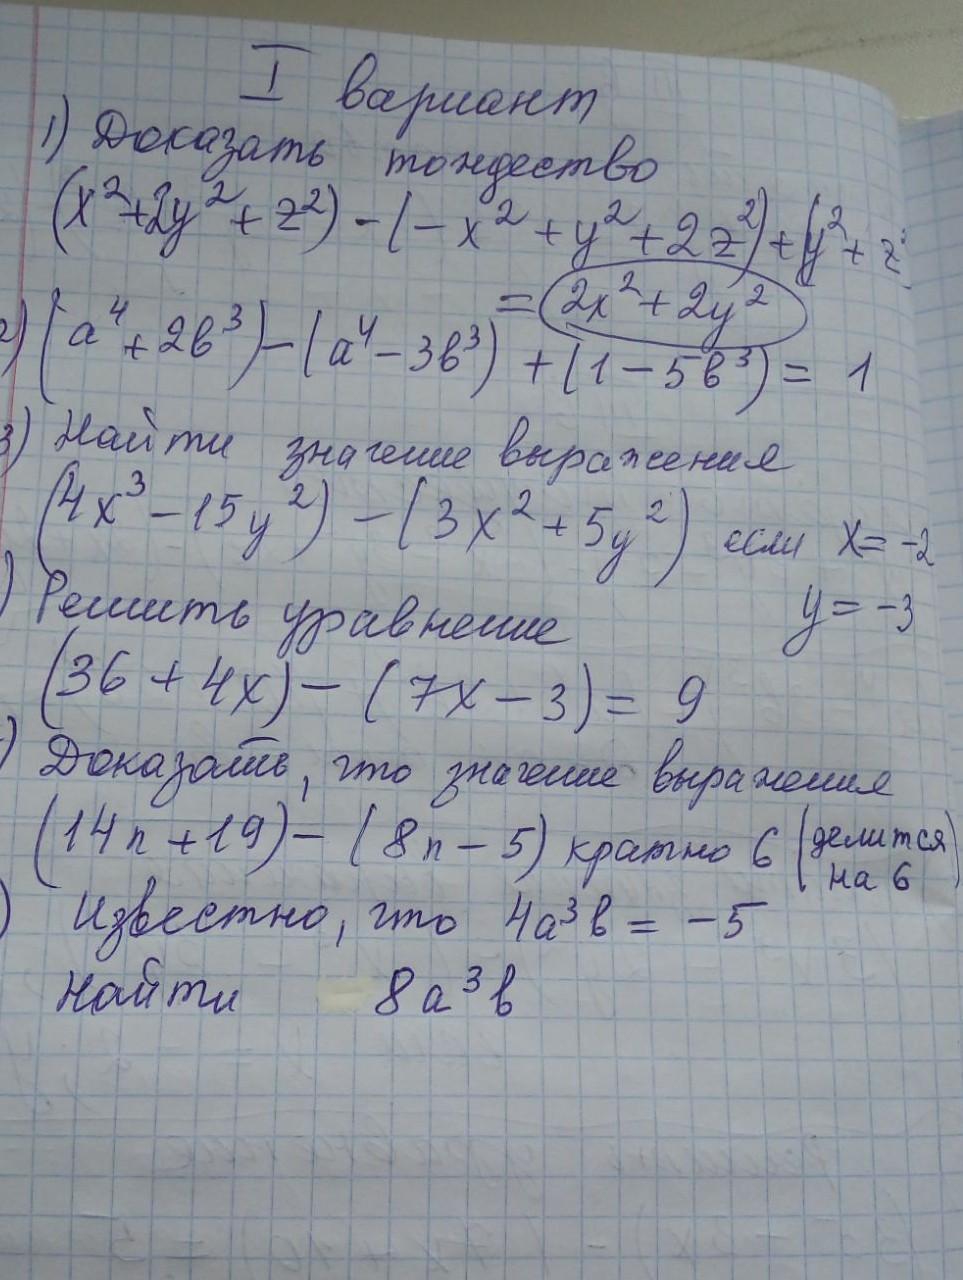 I вариант
1) Доказать тождество
(x²+2y²+z²)-(-x²+y²+2z²)+(y²+z²
=2x²+2y²
2) (a⁴+2b³)-(a⁴-3b³)+(1-5b³)=1
3) Найти значение выражения
(4x³-15y²)-(3x²+5y²) если x=-2
y=-3
) Решить уравнение
(36+4x)-(7x-3)=9
) Доказать, что значение выражения
(14n+19)-(8n-5) кратно 6 (делится
на 6)
) Известно, что 4a³b=-5
Найти 8a³b